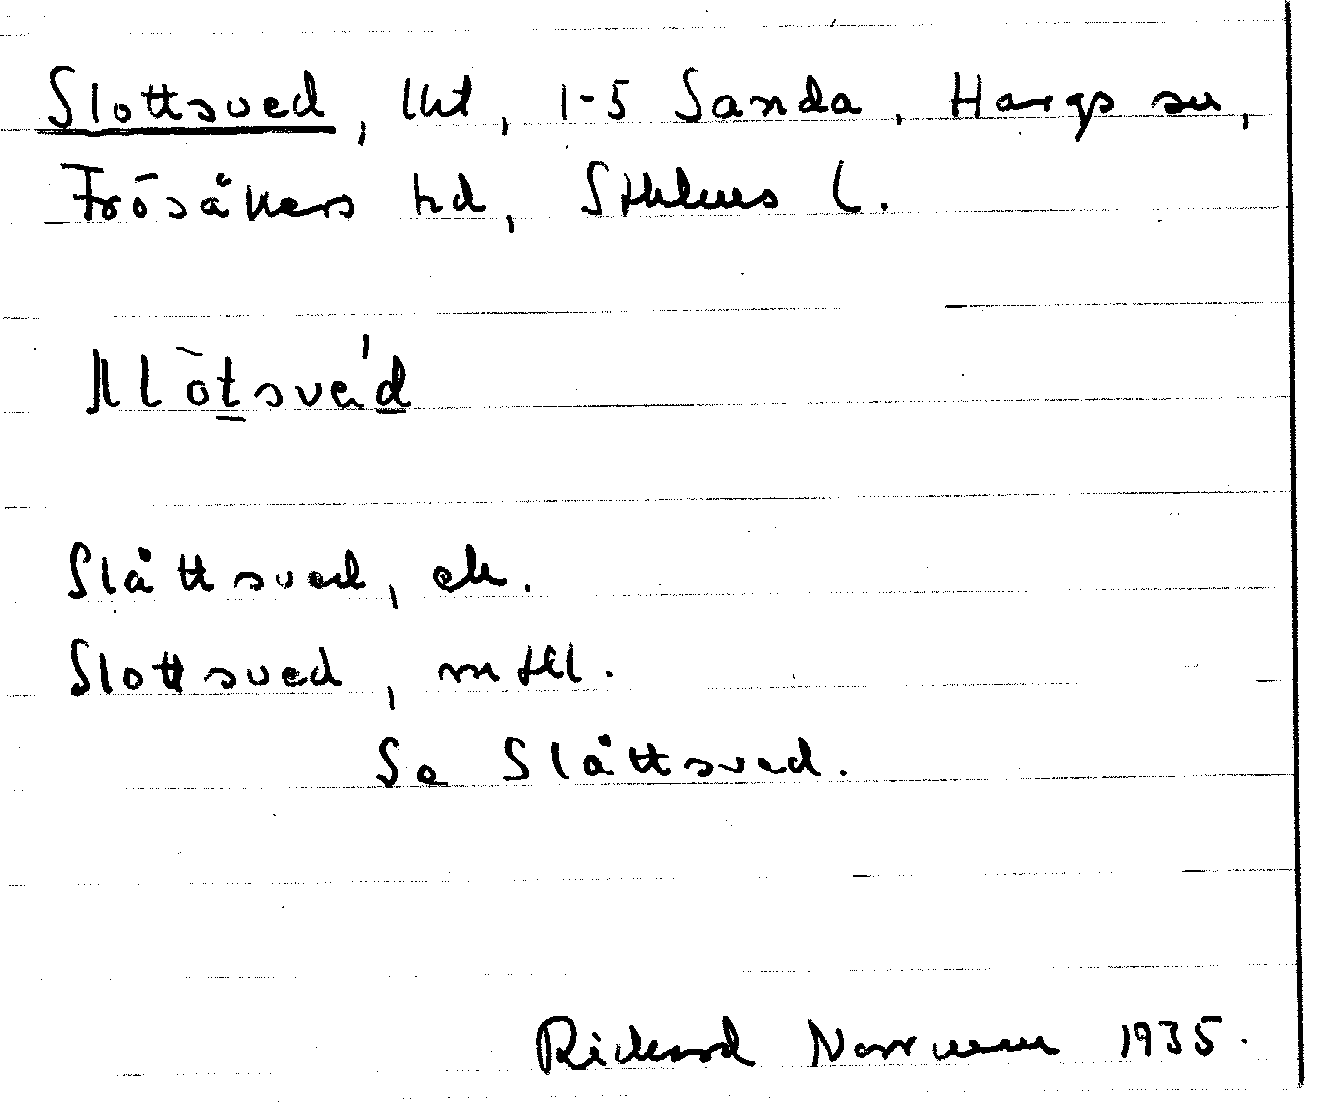 Slottsved, lht, 1-5 Sanda, Hargs sn,
Frösåkers hd, Sthlms l.
Slåttsved, ek.
Slottsved, mtll.
Se Slåttsved.
Rickard Norrman 1935.